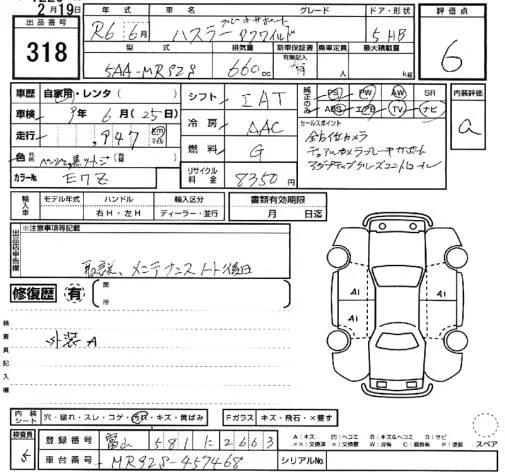 2月19日
出品番号
318
年式 車名 グレード ドア・形状
R6 6月 ハスラー ブレーキサポート タフワイルド 5HB
型式 排気量 新車保証書 乗車定員 最大積載量
有無記入
5AA-MR92S 660cc 有 人 kg
評価点
6
車歴 自家用・レンタ( )
車検 9年 6月(25日)
走行 , 947 km マイル
色 元色 ベージュ黒ツートン(替 )
カラーNo. E7Z
シフト IAT
冷房 AAC
燃料 G
リサイクル料金 8350円
純正のみ PS PW AW SR
ABS エアB TV ナビ
セールスポイント
全方位カメラ
デュアルカメラブレーキサポート
アダプティブクルーズコントロール
内装評価
a
輸入車 モデル年式 ハンドル 輸入区分
年 右H・左H ディーラー・並行
書類有効期限
月 日迄
出品店申告欄
※注意事項等記載
取説、メンテナンスノート後日
修復歴 有 箇所
検査員記入欄
外装A
A1 A1
内装シート 穴・破れ・スレ・コゲ・汚れ・キズ・黄ばみ
Fガラス キズ・飛石・×要す
スペア
検査員
5
登録番号 富山 581 に 2663
車台番号 MR92S-457468
シリアルNo.
A:キズ 凹:ヘコミ B:キズ&ヘコミ S:サビ
××:交換済 ×:交換要 W:波有 C:腐食有 P:塗装